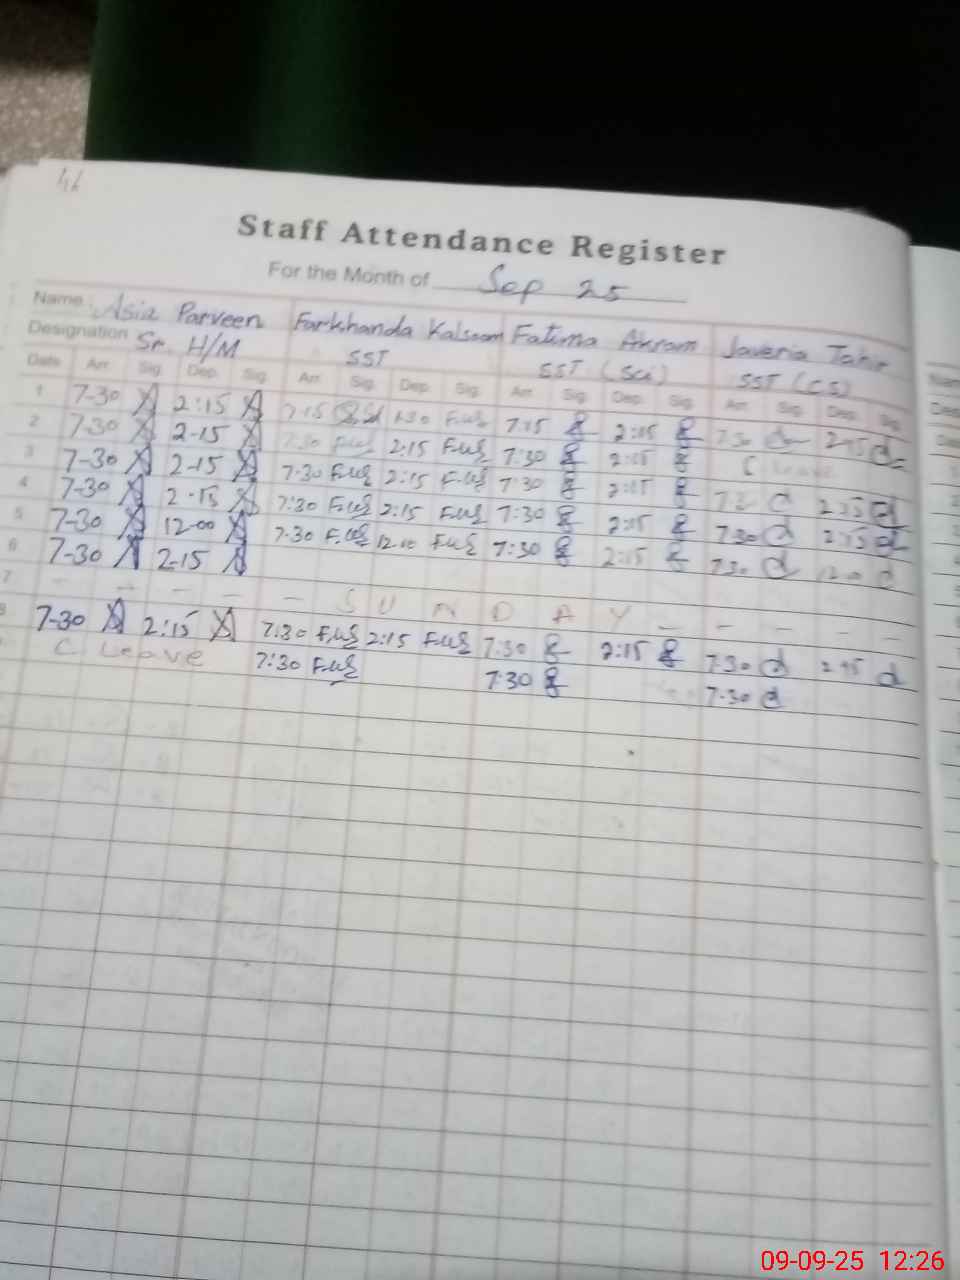 Staff Attendance Register
For the Month of Sep 25
Name: Asia Parveen Farkhanda Kalsoom Fatima Akram Javeria Tahir
Designation Sr. H/M SST SST (Sci) SST (CS)
Date Arr. Sig. Dep. Sig. Arr. Sig. Dep. Sig. Arr. Sig. Dep. Sig. Arr. Sig. Dep. Sig.
1 7-30 2:15 7-15 1:30 F.ug 7:15 2:15 7.30 2-15
2 7-30 2-15 7:30 F.ug 2:15 F.ug 7:30 2:15 C Leave
3 7-30 2-15 7-30 F.ug 2:15 F.ug 7:30 2:15 7.30 d 2:15 d
4 7-30 2-15 7:30 F.ug 2:15 F.ug 7:30 2:15 7.30 d 2:15 d
5 7-30 12-00 7-30 F.ug 12.00 F.ug 7:30 2:15 7.30 d 12-00 d
6 7-30 2-15
7 - - - - S U N D A Y - - - -
8 7-30 2:15 7:30 F.ug 2:15 F.ug 7:30 2:15 7.30 d 2-15 d
C. Leave 7:30 F.ug 7:30 7-30 d
09-09-25 12:26